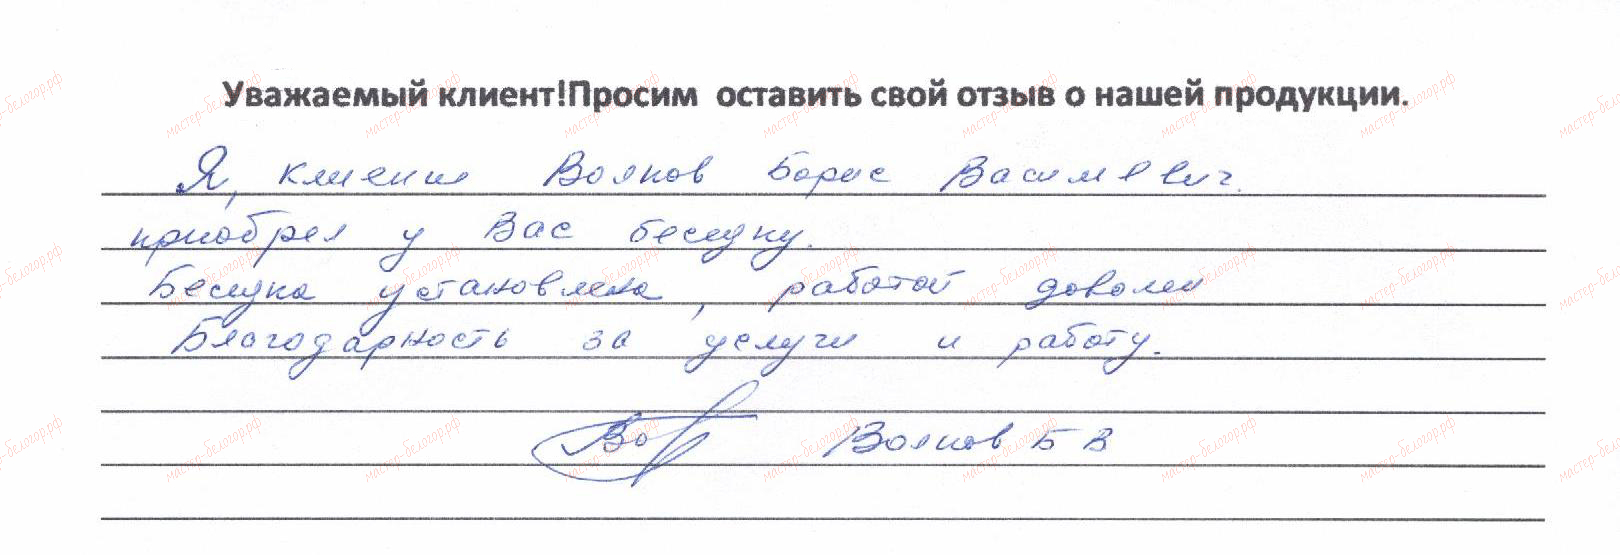 Уважаемый клиент!Просим оставить свой отзыв о нашей продукции.
Я, клиент Волков Борис Василевич.
приобрел у Вас беседку.
Беседка установлена, работой доволен
Благодарность за услуги и работу.
Волков Б В
мастер-белогор.рф